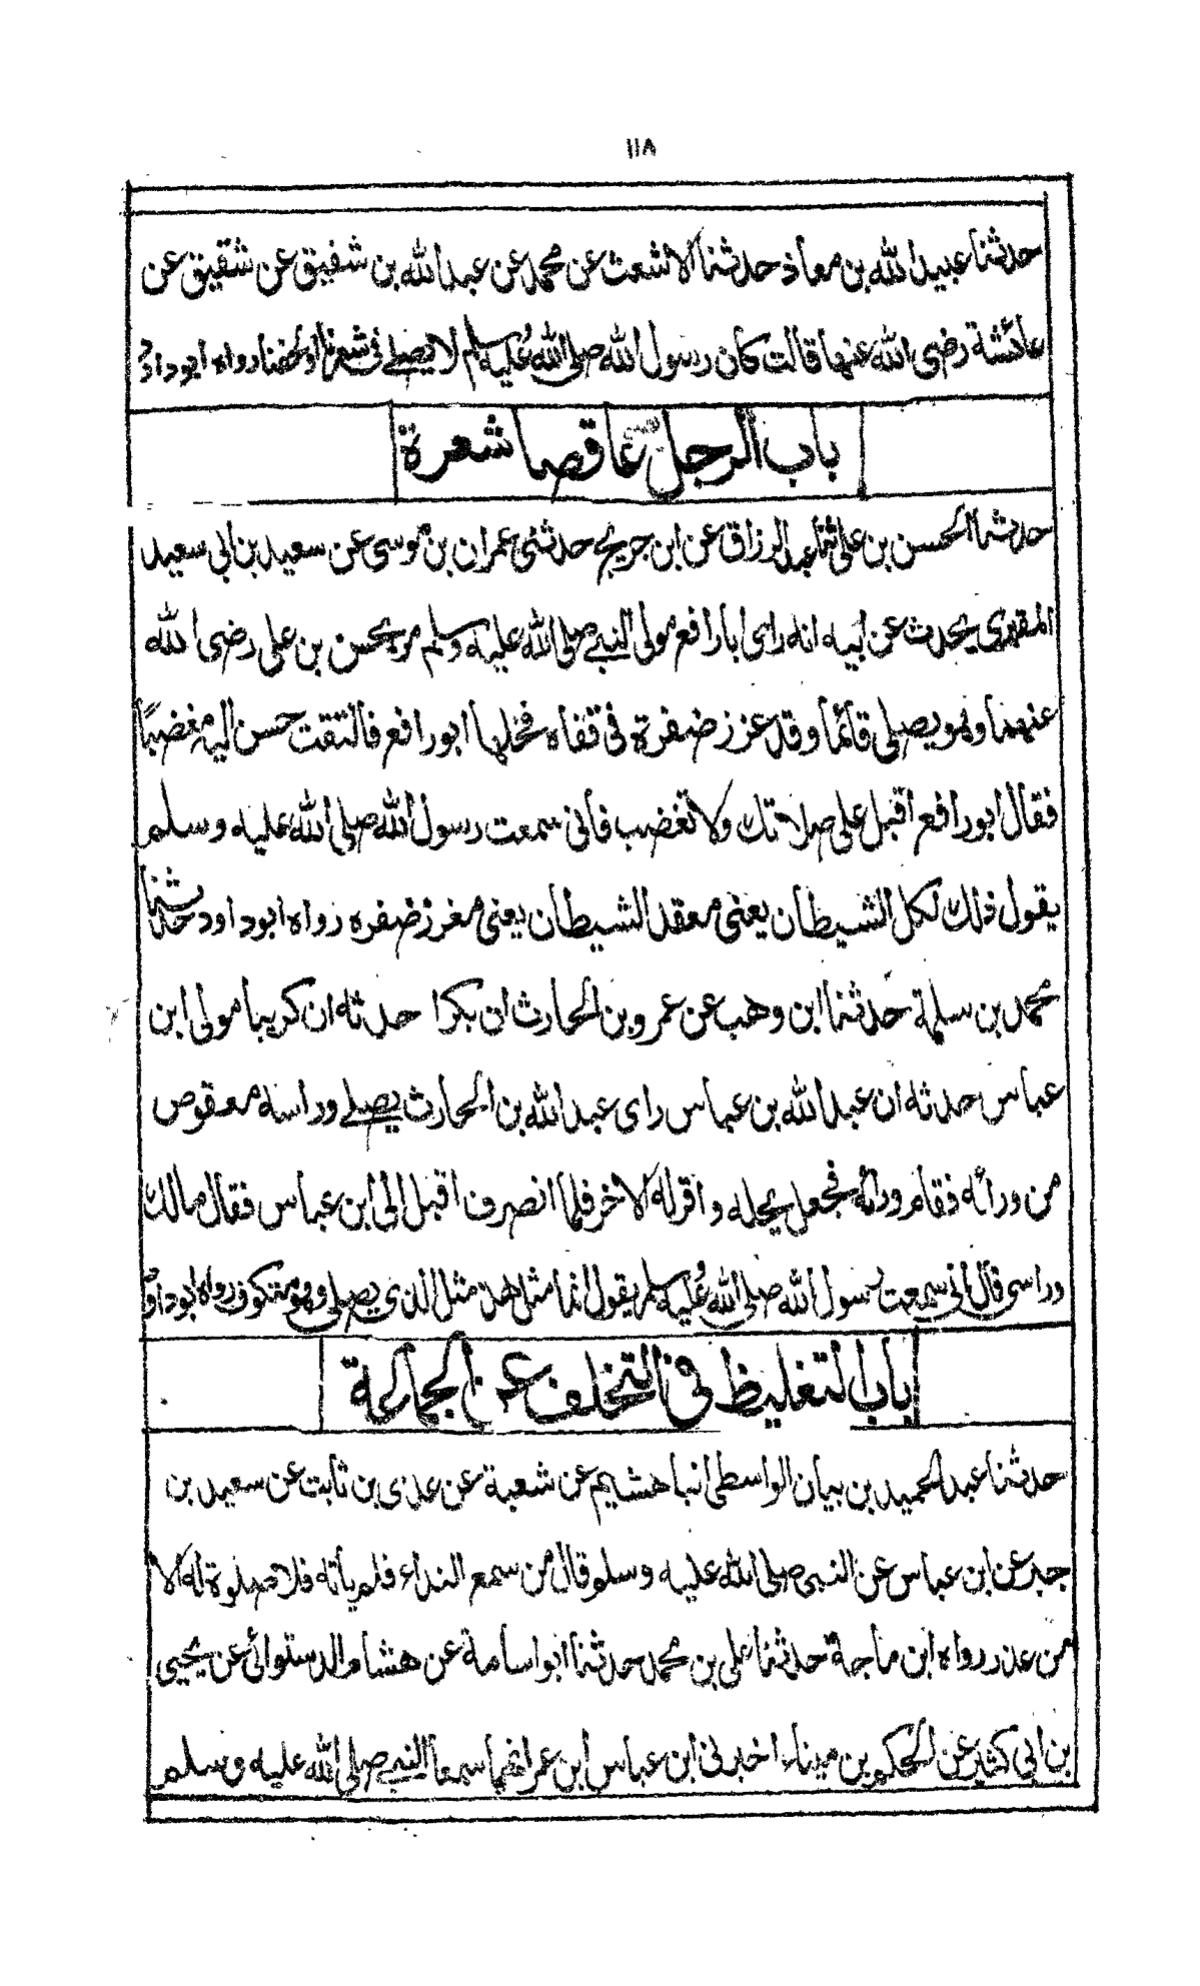 ١١٨
حدثنا عبيد الله بن معاذ حدثنا الاشعث عن محمد عن عبد الله بن شفيق عن شقيق عن
عائشة رضى الله عنها قالت كان رسول الله صلى الله عليه وسلم لا يصلى فى شعرنا او لحفنا رواه ابو داؤد
باب الرجل عاقصا شعرة
حدثنا الحسن بن على ثنا عبد الرزاق عن ابن جريج حدثنى عمران بن موسى عن سعيد بن ابى سعيد
المقبرى يحدث عن ابيه انه راى ابا رافع مولى النبى صلى الله عليه وسلم مر بحسن بن على رضى الله
عنهما وهو يصلى قائما وقد عزز ضفرة فى قفاه فحلها ابو رافع فالتفت حسن اليه مغضبًا
فقال ابو رافع اقبل على صلاتك ولا تغضب فأنى سمعت رسول الله صلى الله عليه وسلم
يقول ذلك لكل الشيطان يعنى معقد الشيطان يعنى مغرز ضفره رواه ابو داود حدثنا
محمد بن سلمة حدثنا ابن وهب عن عمرو بن الحارث ان بكرا حدثه ان كريبا مولى ابن
عباس حدثه ان عبد الله بن عباس راى عبد الله بن الحارث يصلى وراسه معقوص
من ورائه فقام ورائه فجعل يحله واقر له الاخر فلما انصرف اقبل الى ابن عباس فقال مالك
وراسى قال انى سمعت رسول الله صلى الله عليه وسلم يقول انما مثل هذا مثل الذى يصلى وهو مكتوف رواه ابو داؤد
باب التغليظ فى التخلف عن الجماعة
حدثنا عبد الحميد بن بيان الواسطى انبا هشيم عن شعبة عن عدى بن ثابت عن سعيد بن
جبر عن ابن عباس عن النبى صلى الله عليه وسلم قال من سمع النداء فلم يأته فلا صلوة له الا
من عذر رواه ابن ماجة حدثنا على بن محمد حدثنا ابو اسامة عن هشام الدستوائى عن يحيى
بن ابى كثير عن الحكم بن ميناء اخبرنى ابن عباس ابن عمر انهما سمعا النبى صلى الله عليه وسلم